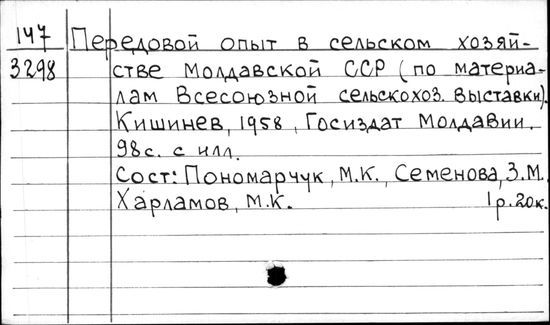 147 Передовой опыт в сельском хозяй-
3298 стве Молдавской ССР (по материа-
лам Всесоюзной сельскохоз. выставки).
Кишинев, 1958, Госиздат Молдавии.
98с. с илл.
Сост: Пономарчук, М.К., Семенова, З.М.
Харламов, М.К. 1р.20к.